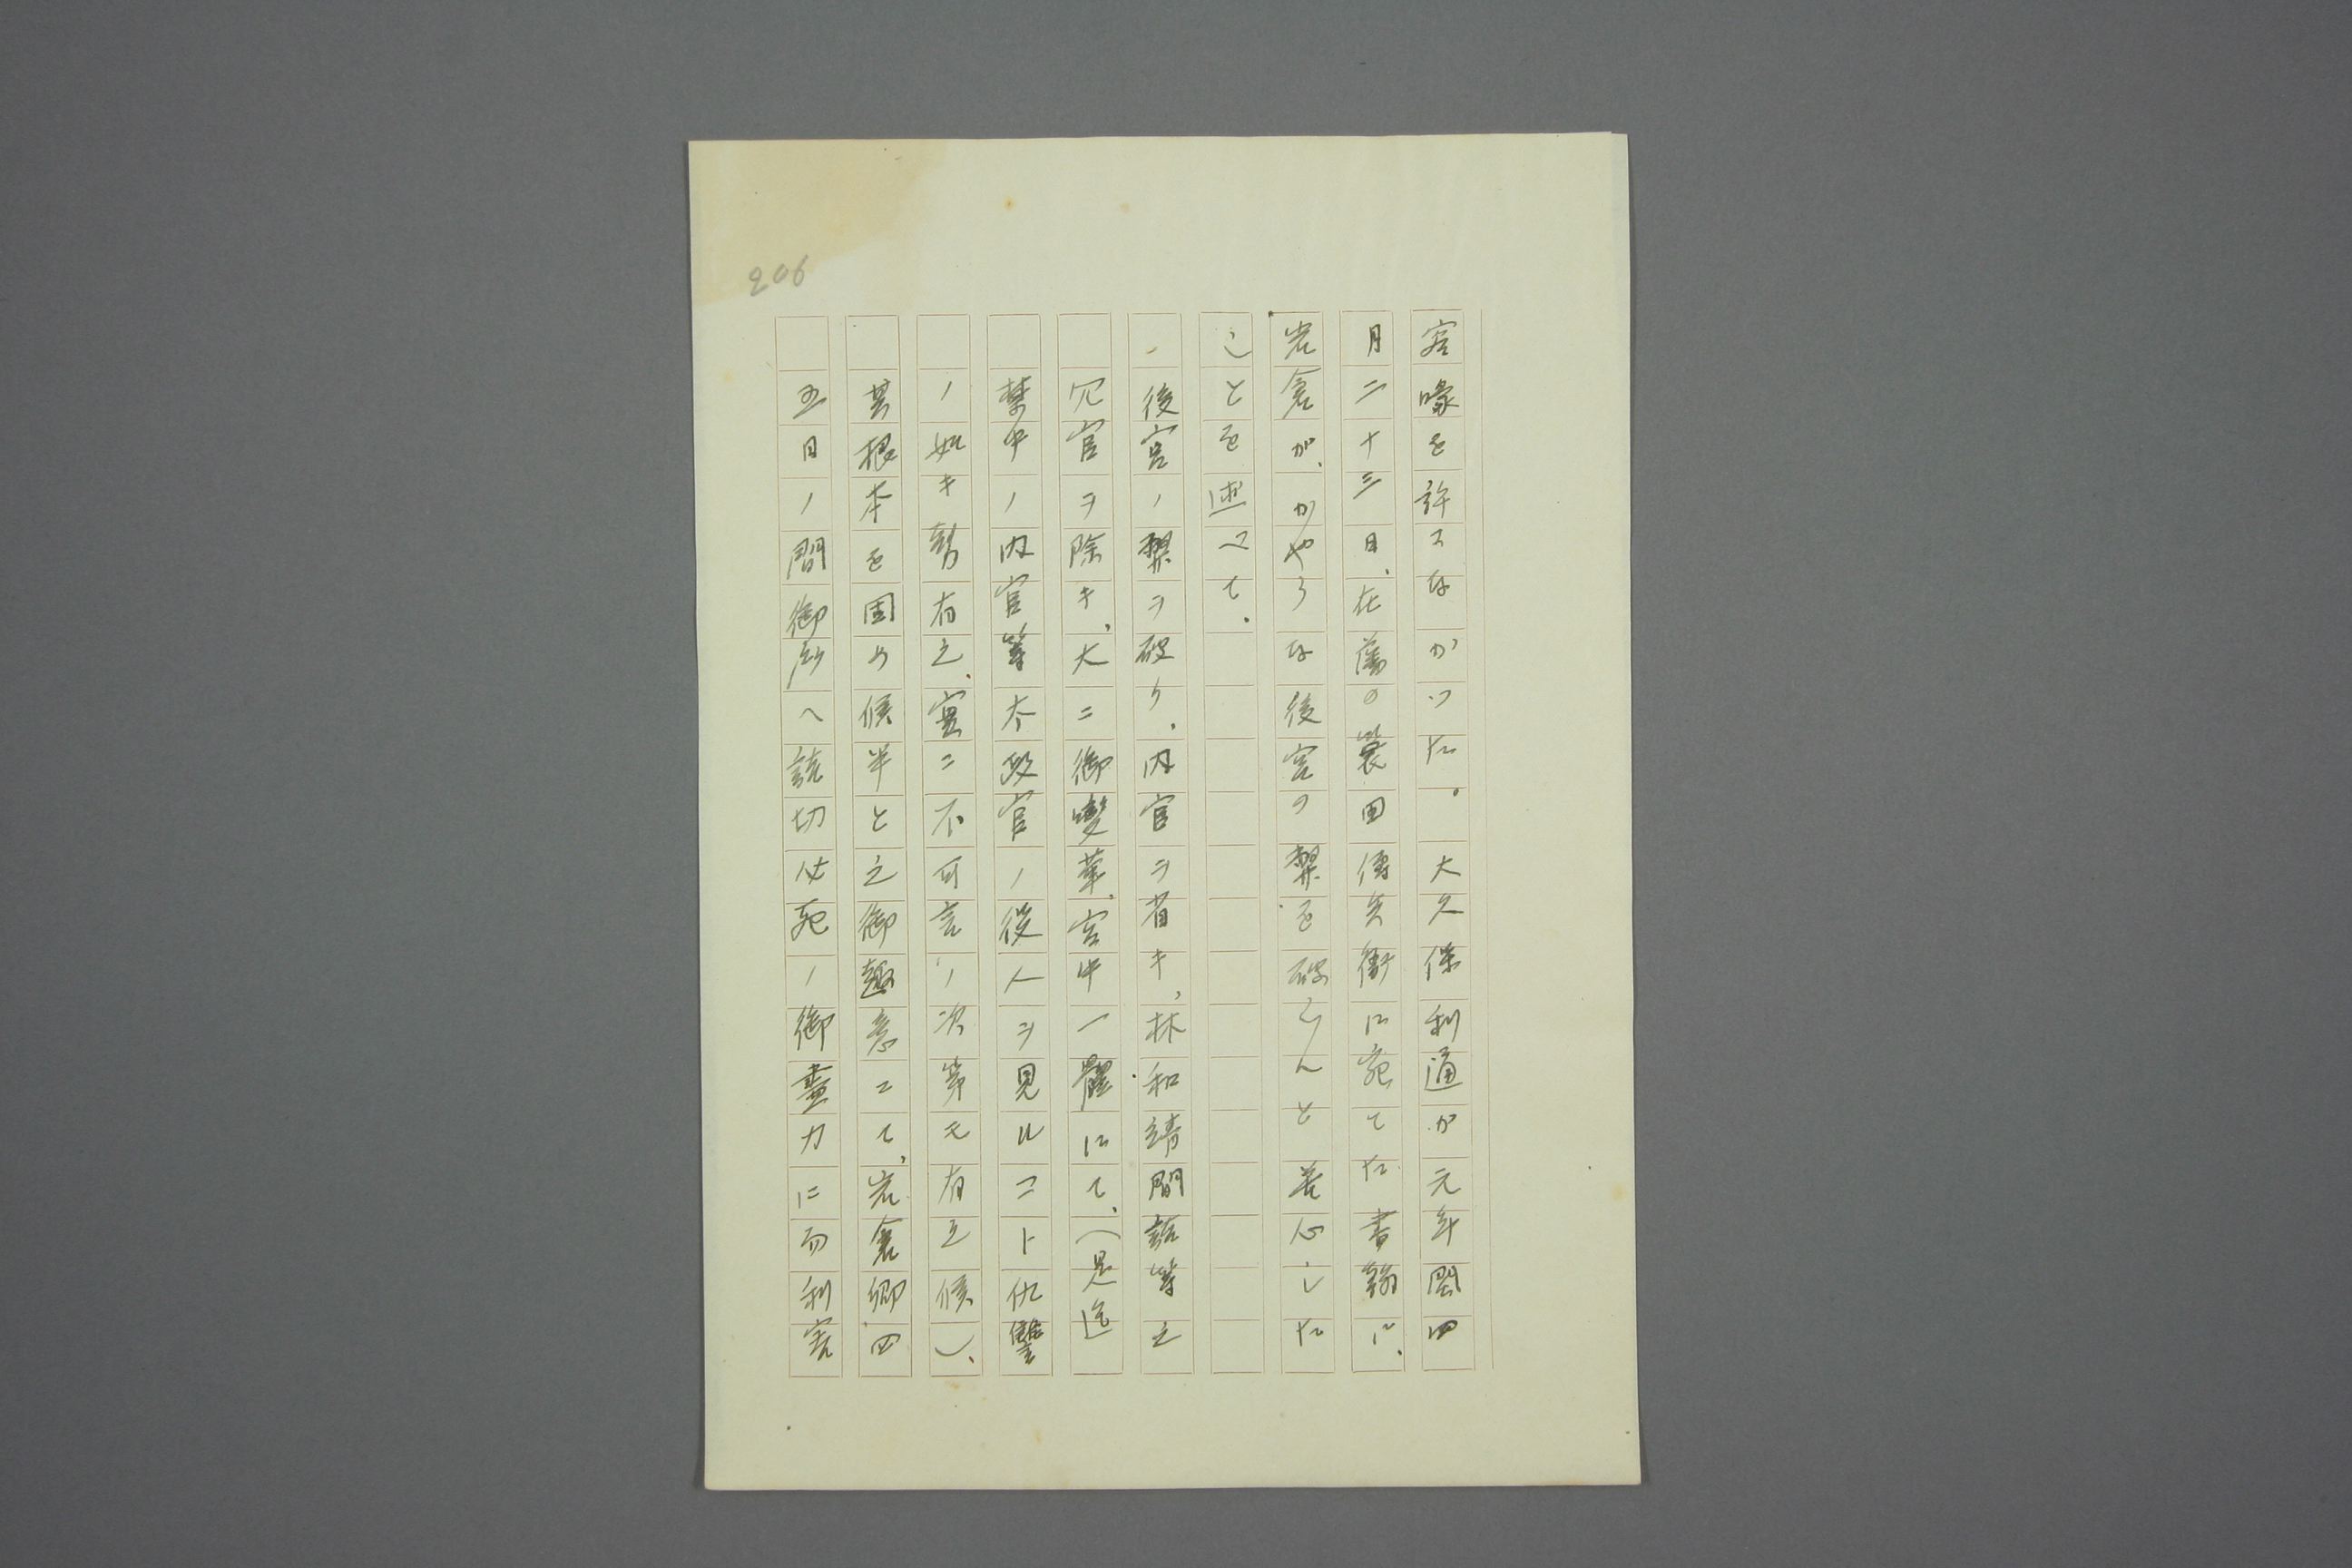 206
容喙を許さなかった。大久保利通が元年閏四
月二十三日、在藩の蓑田傳兵衞に宛てた書翰に、
岩倉が、かやうな後宮の弊を破らんと苦心した
ことを述べて、
一後宮ノ弊ヲ破リ、内官ヲ省キ、林和靖間詰等之
冗官ヲ除キ、大ニ御變革、宮中一體にて、(是迄
禁中ノ内官等太政官ノ役人ヲ見ルコト仇讐
ノ如キ勢有之、実ニ不可言ノ次第モ有之候)、
其根本を固め候半と之御趣意ニて、岩倉卿四
五日ノ間御所へ詰切必死ノ御盡力に而利害